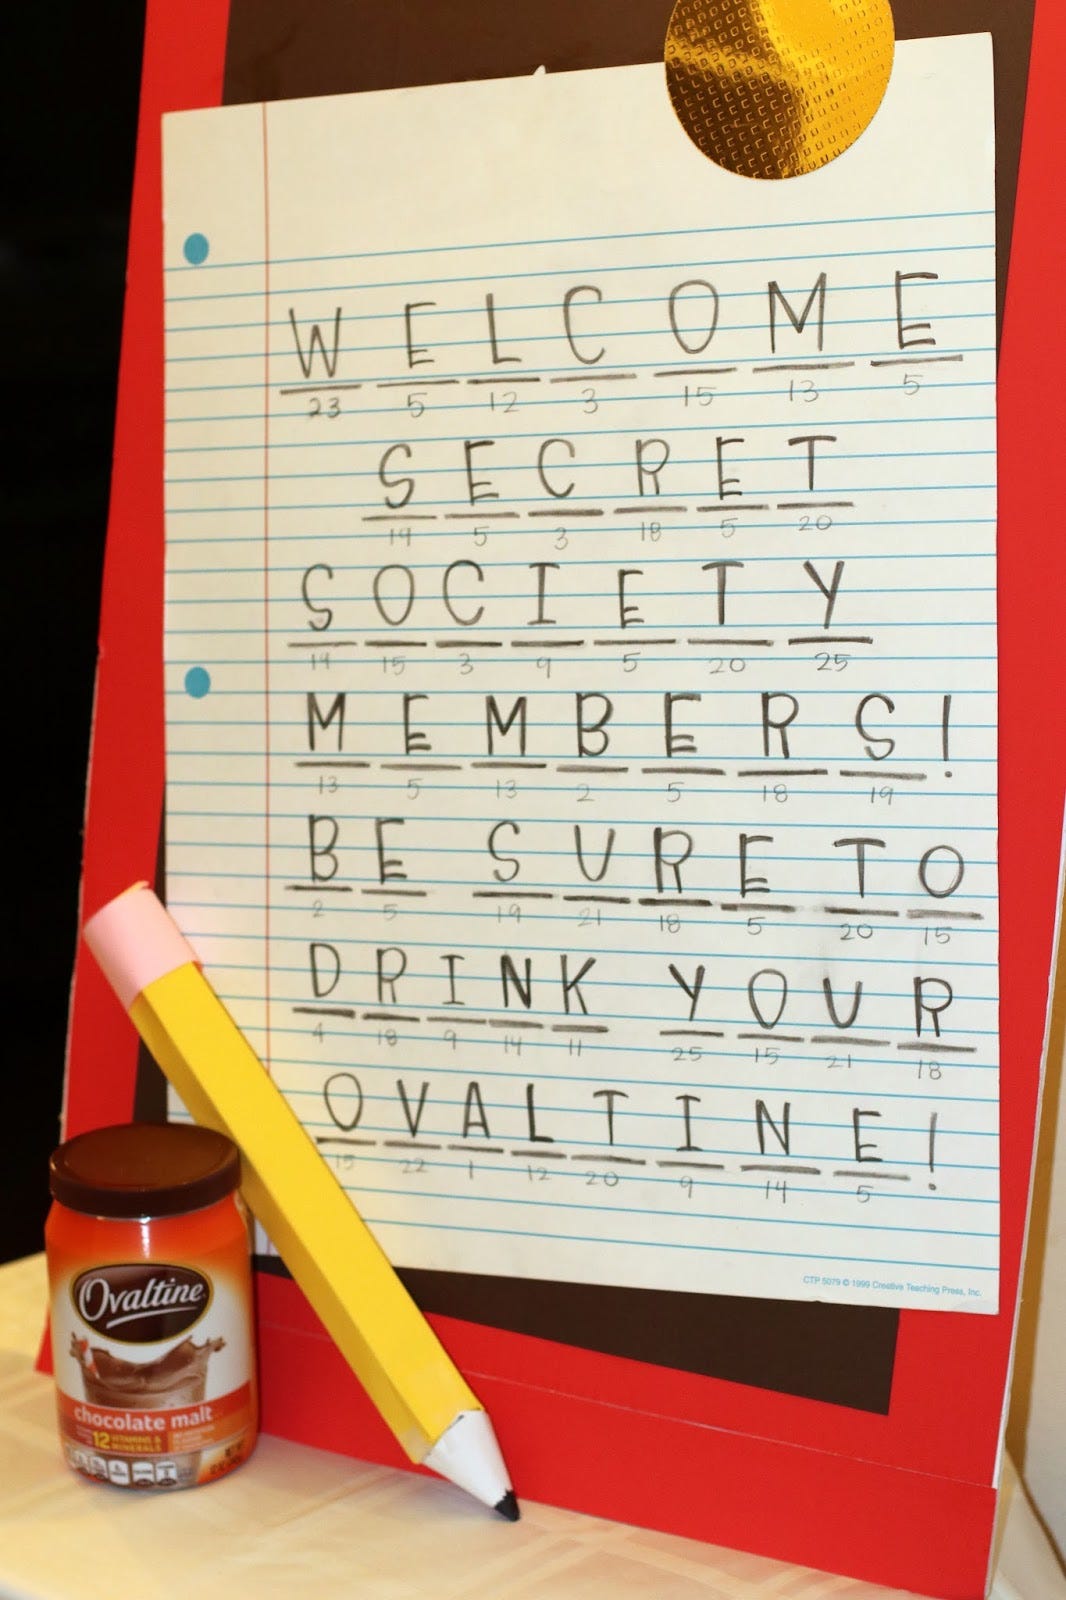 WELCOME
23 5 12 3 15 13 5
SECRET
19 5 3 18 5 20
SOCIETY
19 15 3 9 5 20 25
MEMBERS!
13 5 13 2 5 18 19
BE SURE TO
2 5 19 21 18 5 20 15
DRINK YOUR
4 18 9 14 11 25 15 21 18
OVALTINE!
15 22 1 12 20 9 14 5
CTP 5079 © 1999 Creative Teaching Press, Inc.
Ovaltine
chocolate malt
12 VITAMINS & MINERALS